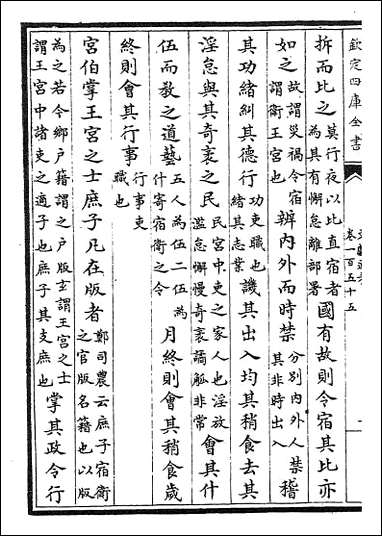 欽定四庫全書
卷一百五十五
拆而比之莫行夜以比直宿者為其有懈怠離部署國有故則令宿其比亦
如之故謂災禍令宿謂衛王宮也辨內外而時禁分別內外人禁其非時出入稽
其功緒糾其德行功吏職也緒其志業譏其出入均其稍食去其
淫怠與其奇衺之民民宮中吏之家人也淫放濫怠懈慢奇衺譎觚非常會其什
伍而教之道藝五人為伍二伍為什寄宿衛之令月終則會其稍食歲
終則會其行事行事吏職也
宮伯掌王宮之士庶子凡在版者鄭司農云庶子宿衛之官版名籍也以版
為之若今鄉户籍謂之户版玄謂王宮之士謂王宮中諸吏之適子也庶子其支庶也掌其政令行